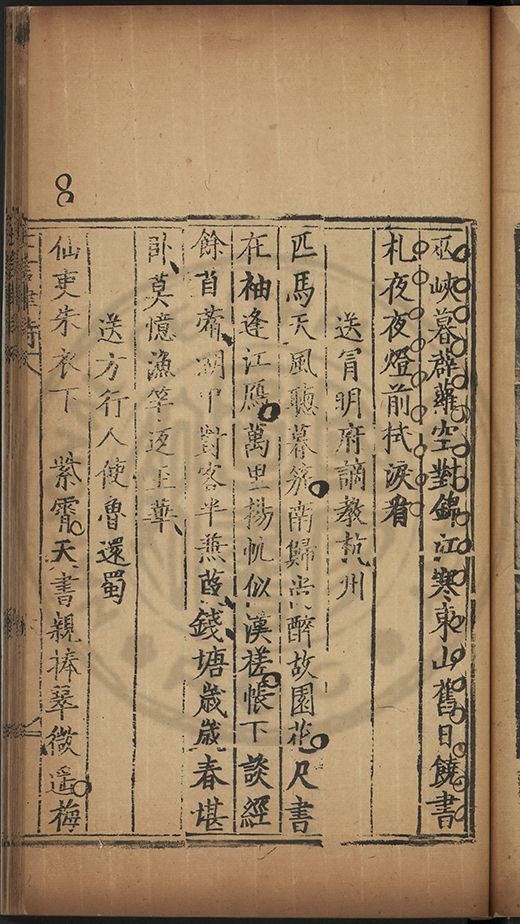 巫峽暮辭蘿空對錦江寒東山舊日饒書
札夜夜燈前拭淚看
送甯明府謫教杭州
匹馬天風聽暮笳南歸尚醉故園花尺書
在袖逢江鴈萬里揚帆似漢槎帳下談經
餘苜蓿湖中對客半蒹葭錢塘歲歲春堪
臥莫憶漁竿
送方行人使魯還蜀
仙吏朱衣下紫霄天書親捧翠微遥梅
8